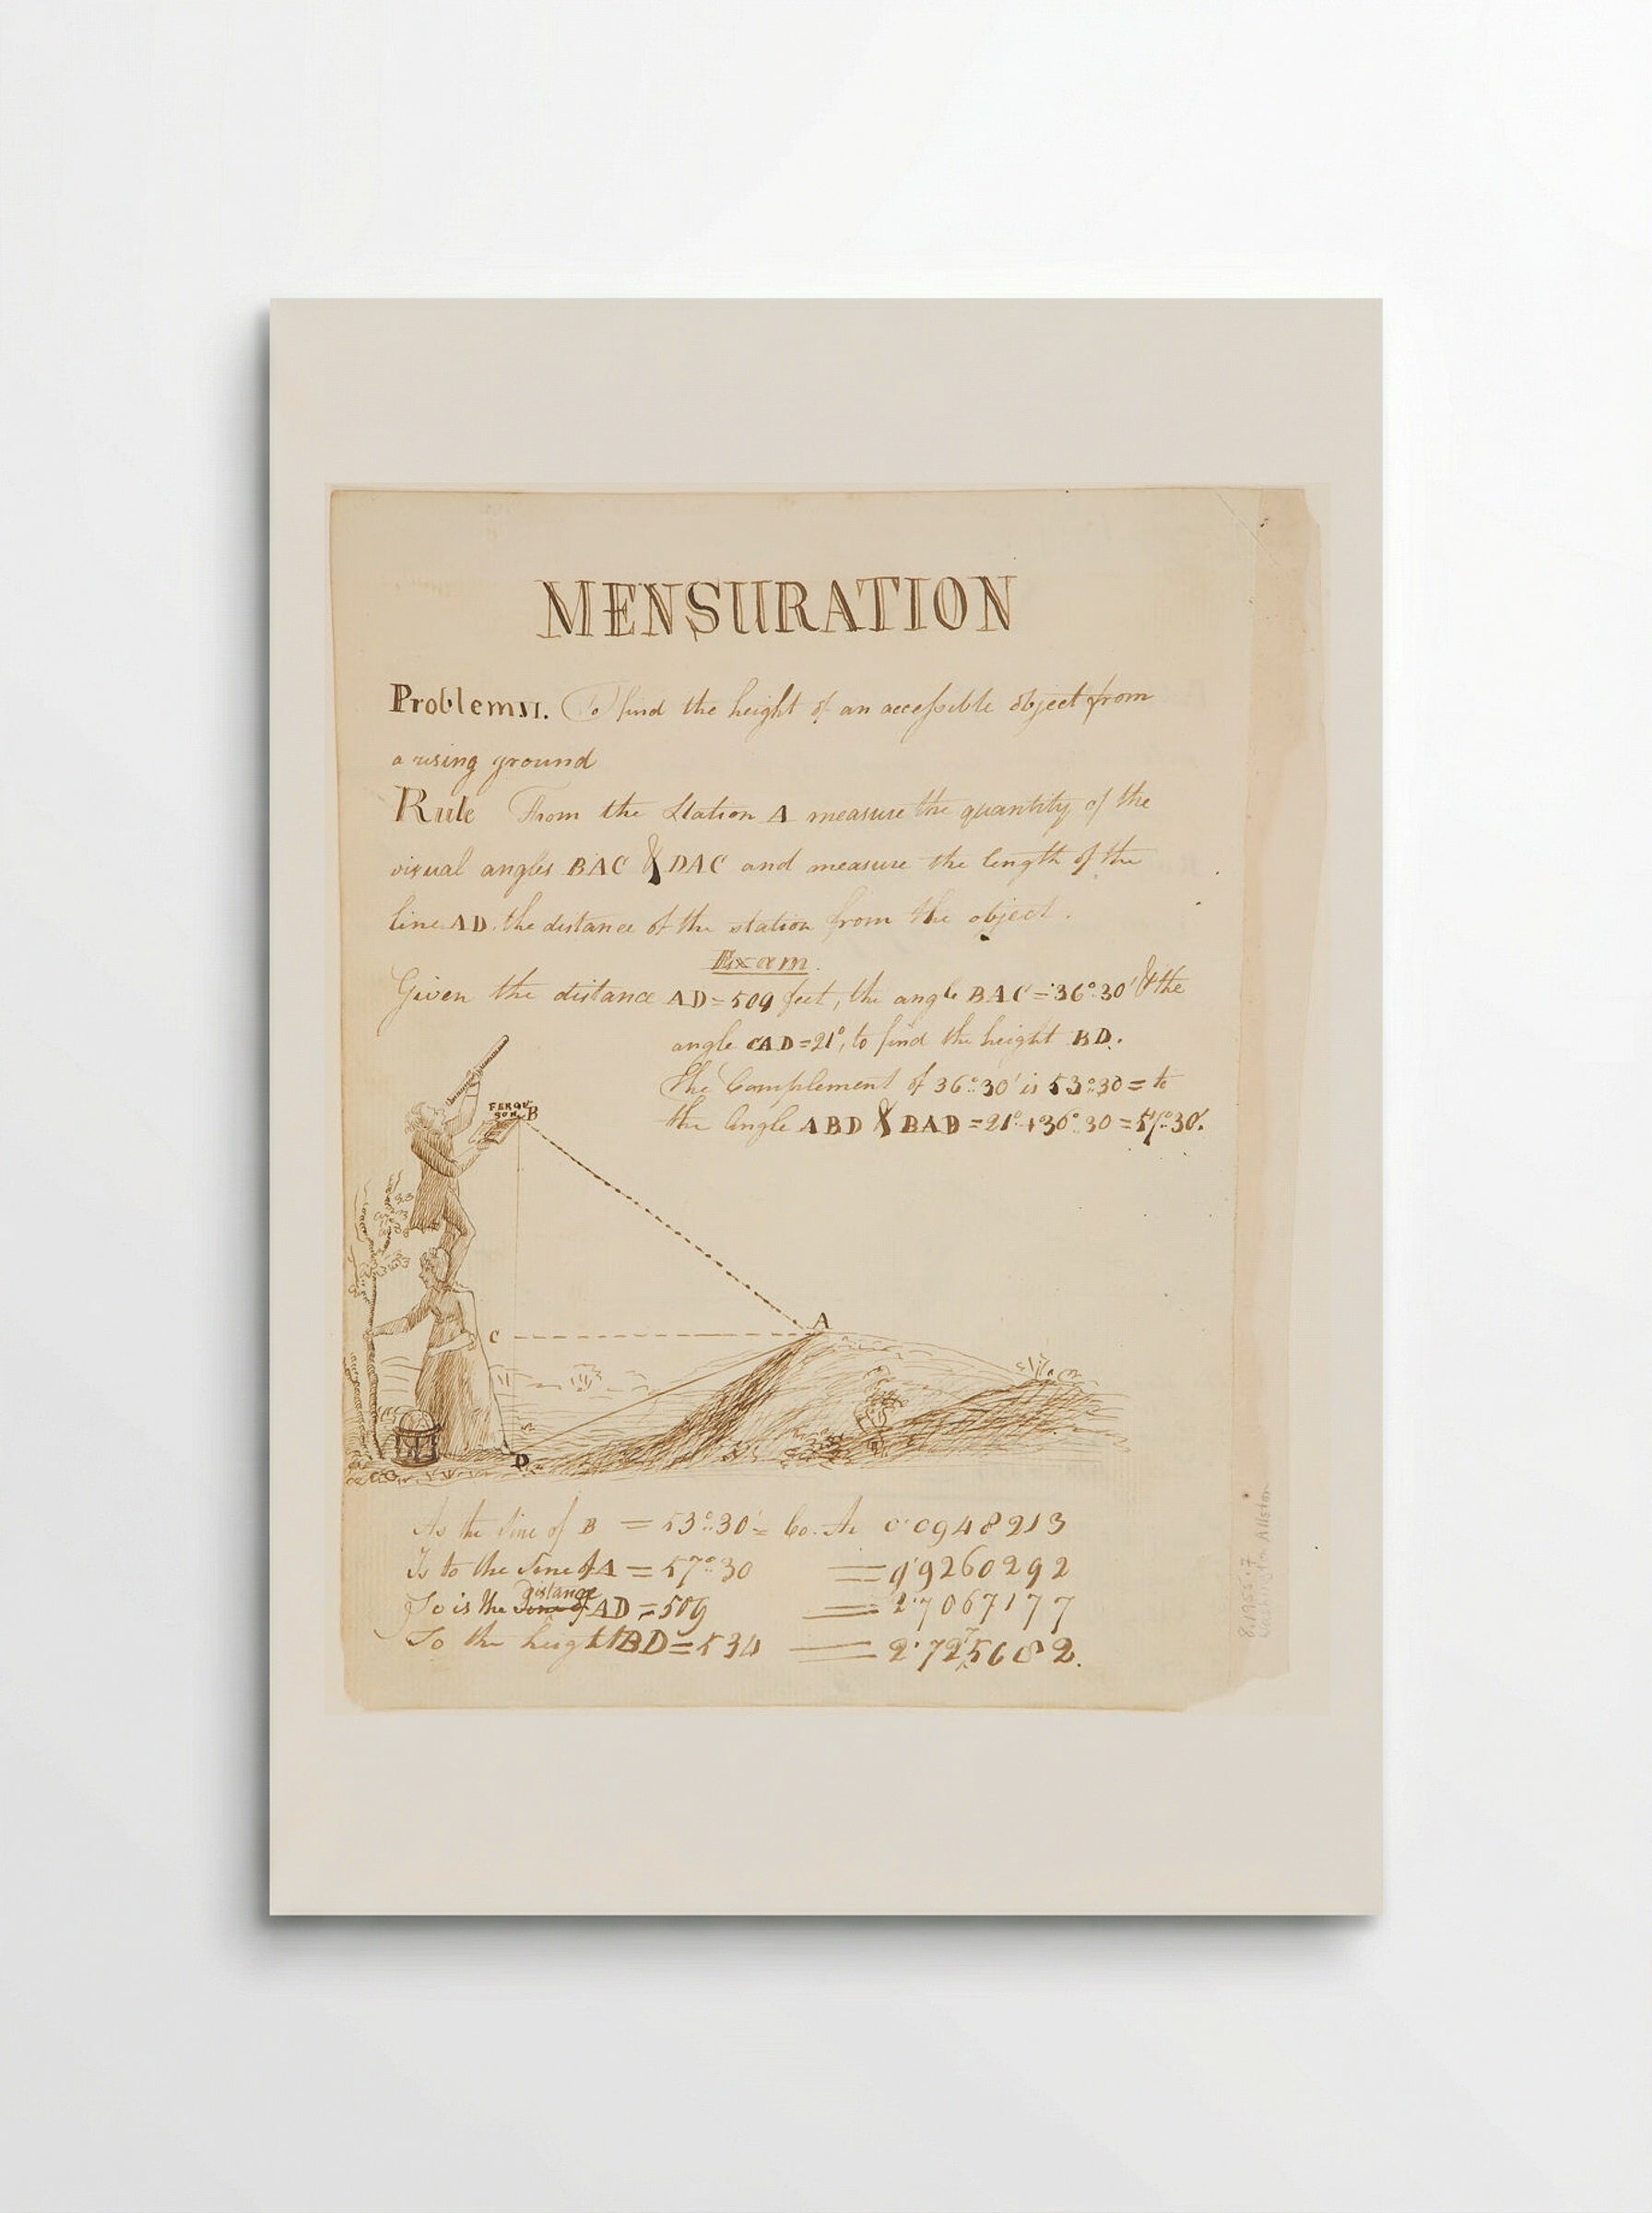 MENSURATION
Problem VI. To find the height of an accessible object from
a rising ground
Rule From the Station A measure the quantity of the
visual angles BAC & DAC and measure the length of the
line AD. the distance of the station from the object.
Exam.
Given the distance AD=509 feet, the angle BAC=36°.30' & the
angle CAD=21°, to find the height BD.
The Complement of 36°.30' is 53°.30= to
the Angle ABD & BAD=21°+36°.30=57°.30'.
FERGU
SON
B
A
C
D
As the Sine of B = 53°.30'= Co. Ar 0.0948213
Is to the Sine of A = 57°.30 = 9.9260292
distance
So is the Sine of AD =509 = 2.7067177
To the height BD=534 = 2.7275682.
8.1955.7
Washington Allston